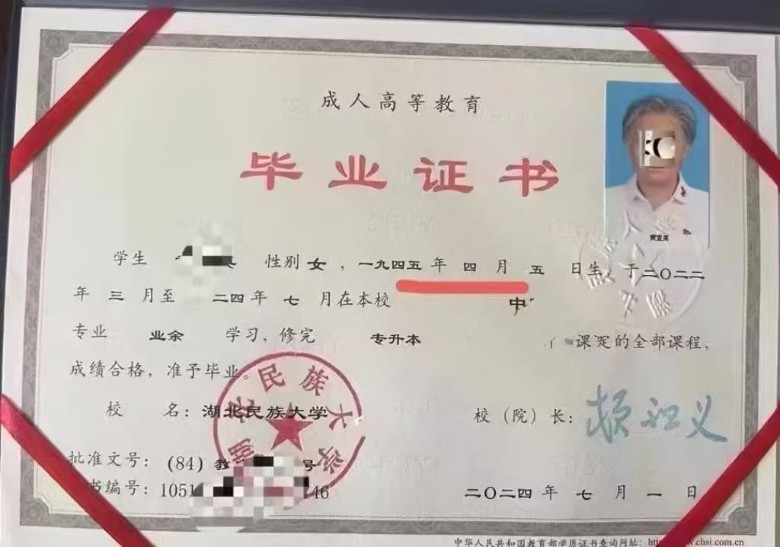 成人高等教育
毕业证书
学生 性别 女，一九四五年 四 月 五 日生，于二〇二二
年 三 月至 二四年 七 月在本校 中
专业 业余 学习，修完 专升本 课定的全部课程、
成绩合格，准予毕业。
校 名：湖北民族大学
湖北民族大学
校（院）长：
批准文号：（84）教 号
书编号：1051 146
二〇二四年 七 月 一 日
中华人民共和国教育部学历证书查询网址：http://www.chsi.com.cn